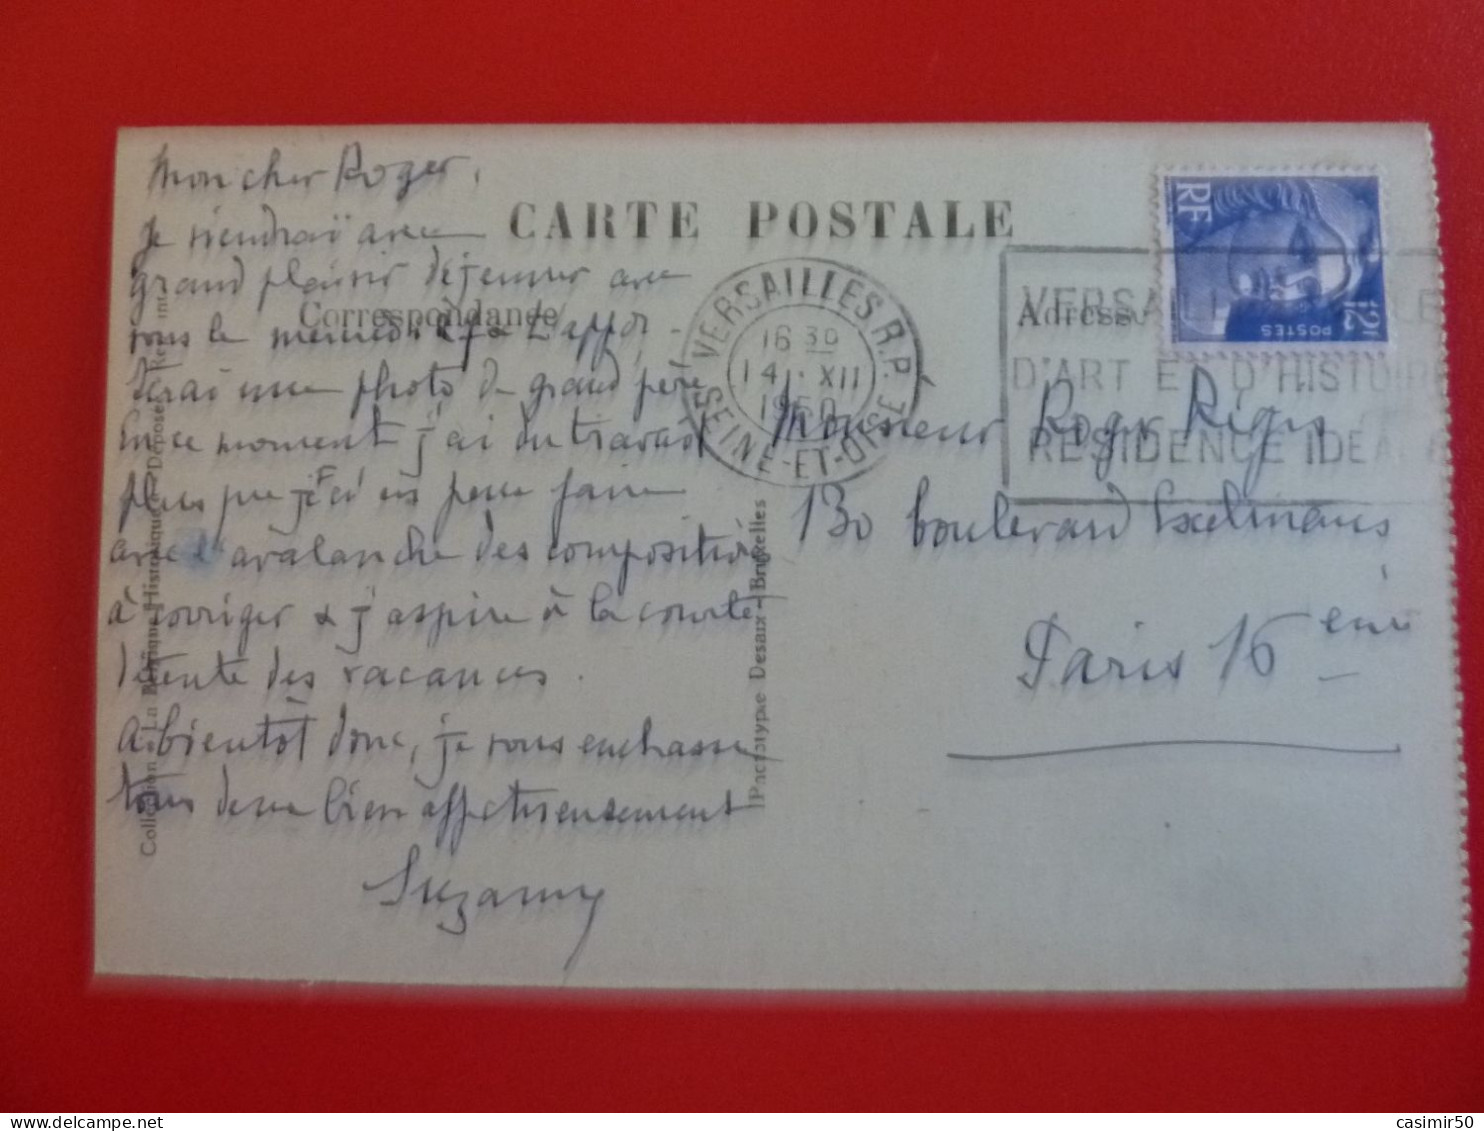 CARTE POSTALE
Correspondance
Adresse
Mon cher Roger,
Je viendrai avec
grand plaisir déjeuner avec
vous le mercredi
terai une photo de grand père
En ce moment j'ai du travail
plus que je n'en peux faire
avec l'avalanche des compositions
à corriger & j'aspire à la courte
détente des vacances.
A bientôt donc, je vous embrasse
tous deux bien affectueusement
Suzanne
Monsieur Roger Régis
130 boulevard Exelmans
Paris 16 eme
VERSAILLES R.P.
16 30
14 XII
1950
SEINE-ET-OISE
VERSAILLES
D'ART ET D'HISTOIRE
RESIDENCE IDEALE
RF
POSTES
12F
Collection La Belgique Historique Déposé
Phototypie Desaix - Bruxelles
casimir50